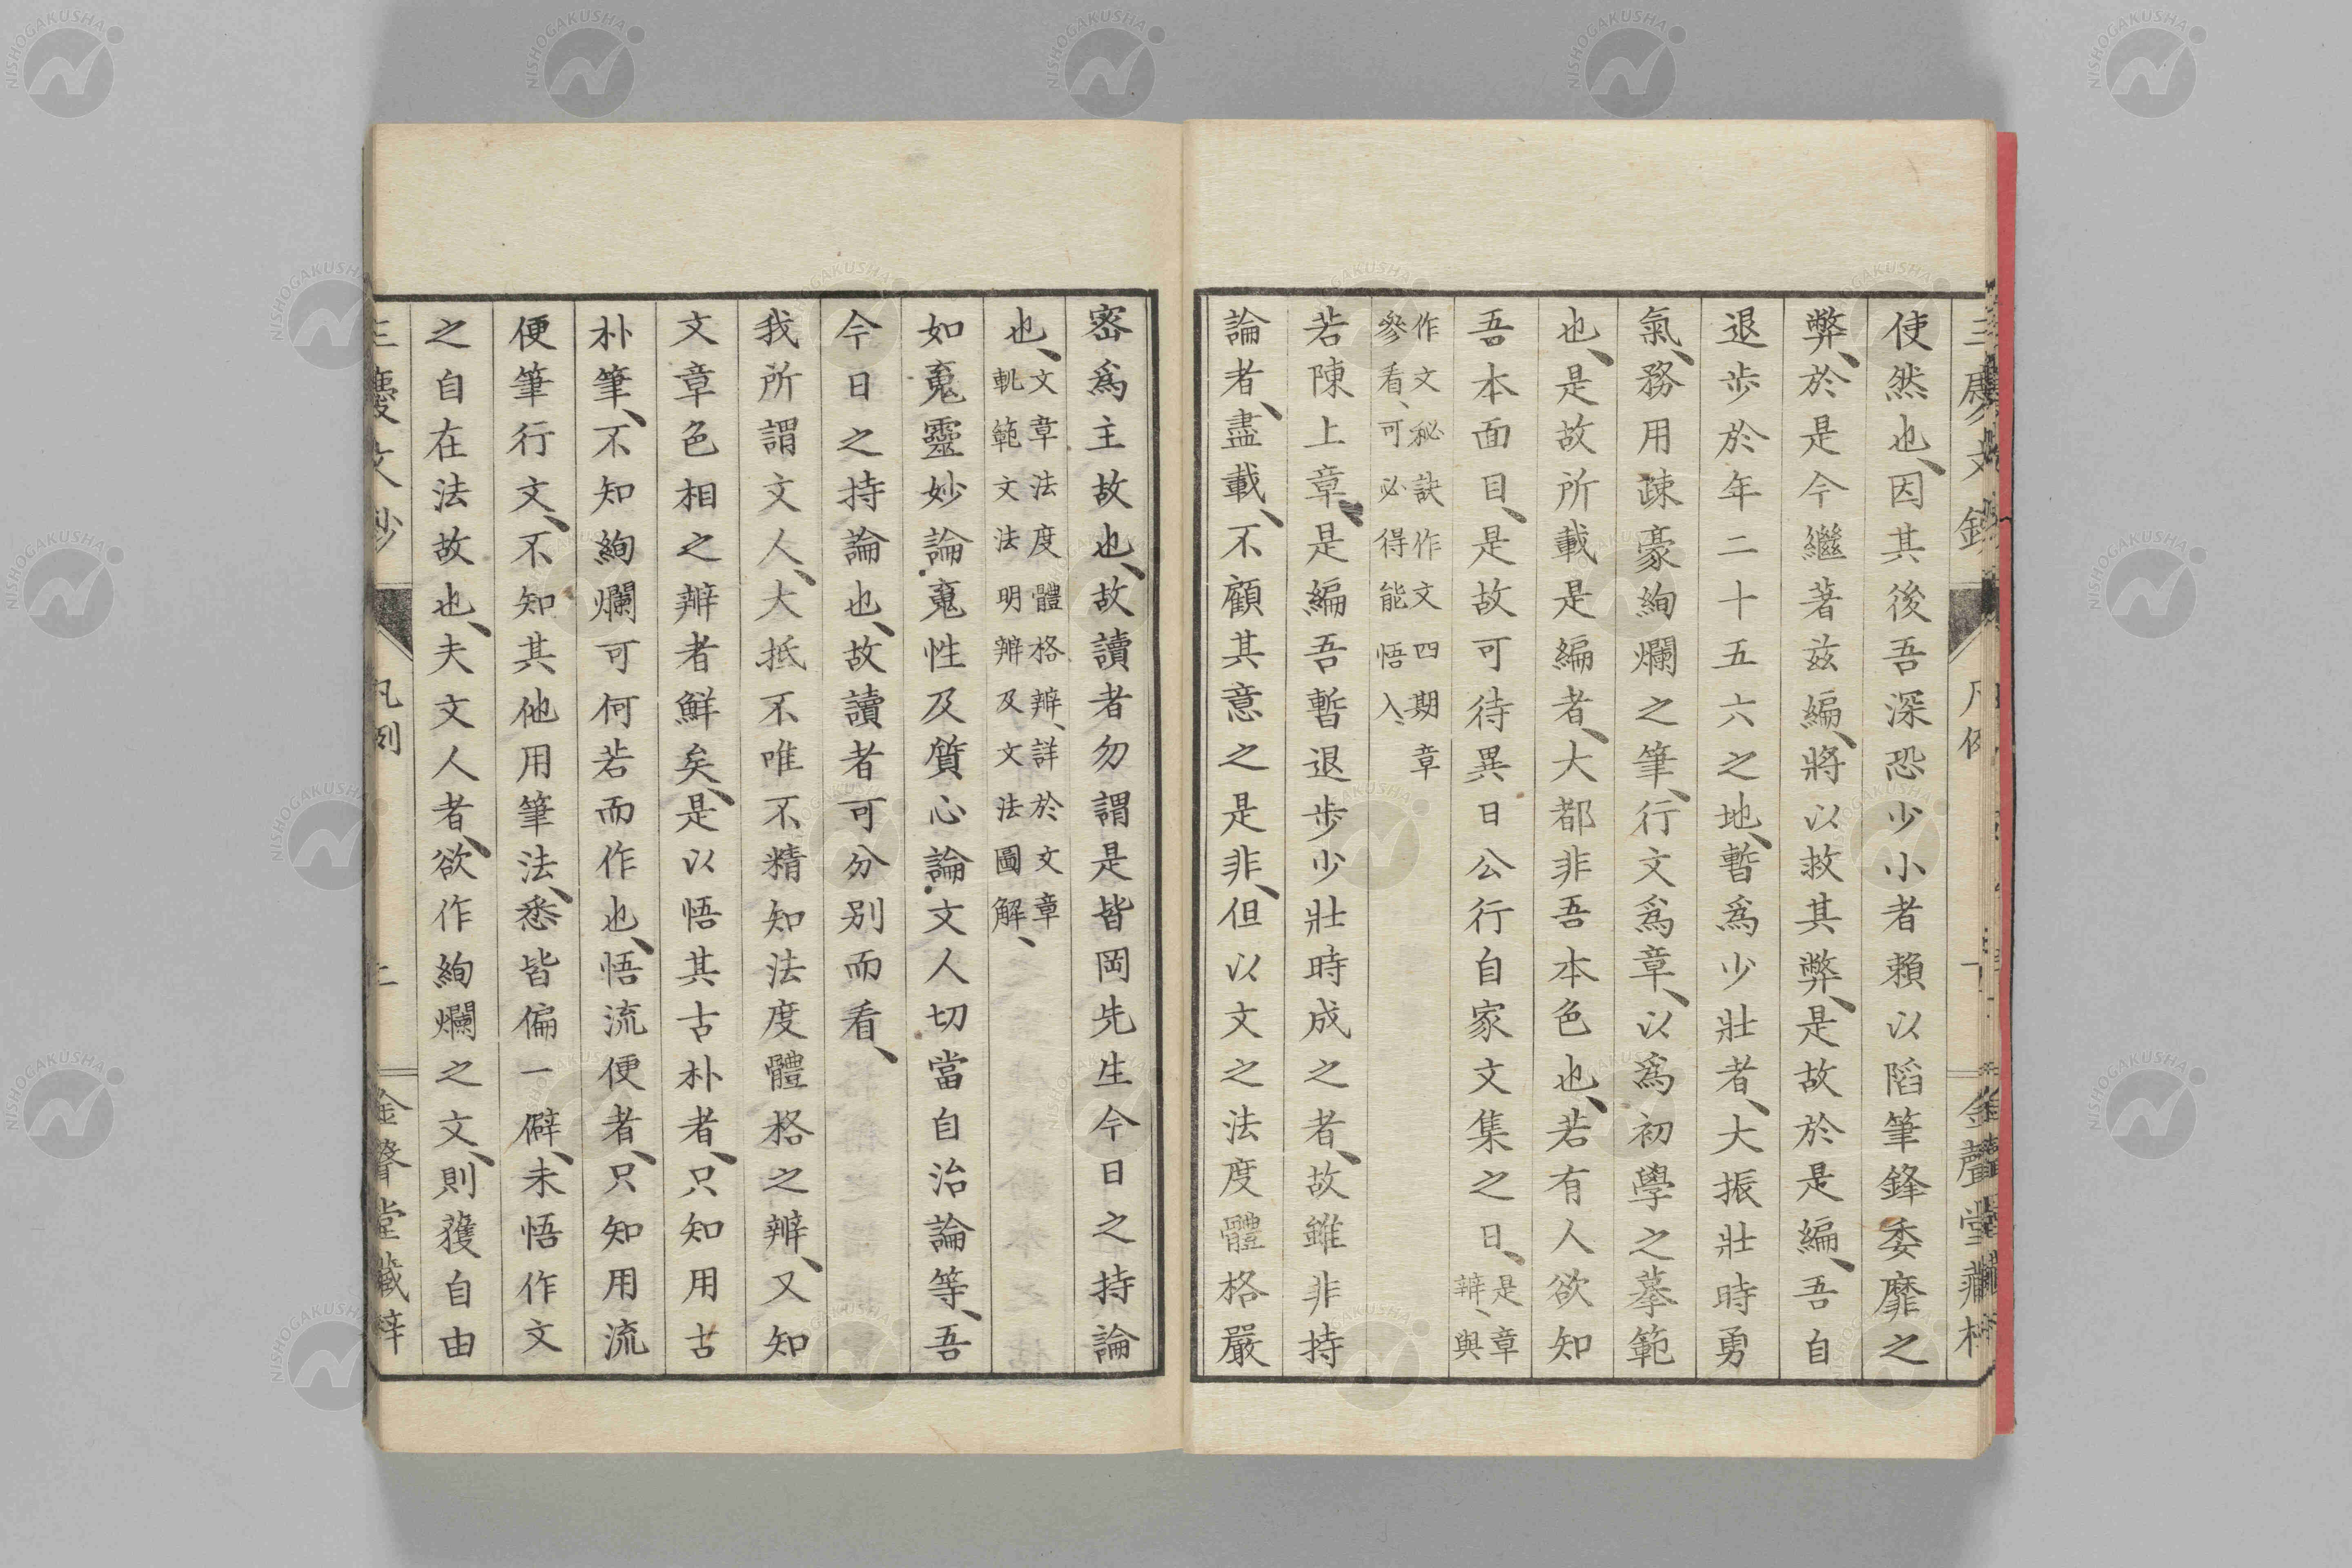 使然也、因其後吾深恐少小者賴以蹈筆鋒委靡之
弊、於是今繼著茲編、將以救其弊、是故於是編、吾自
退歩於年二十五六之地、暫爲少壯者、大振壯時勇
氣、務用疎豪絢爛之筆、行文爲章、以爲初學之摹範
也、是故所載是編者、大都非吾本色也、若有人欲知
吾本面目、是故可待異日公行自家文集之日、是章辨、與章
作文秘訣作文四期章
參看、可必得能悟入、
若陳上章、是編吾暫退歩少壯時成之者、故雖非持
論者、盡載、不顧其意之是非、但以文之法度體格嚴
密爲主故也、故讀者勿謂是皆岡先生今日之持論
也、文章法度體格辨、詳於文章
軌範文法明辨及文法圖解、
如蒐靈妙論蒐性及質心論文人切當自治論等、吾
今日之持論也、故讀者可分別而看、
我所謂文人、大抵不唯不精知法度體格之辨、又知
文章色相之辨者鮮矣、是以悟其古朴者、只知用古
朴筆、不知絢爛可何若而作也、悟流便者、只知用流
便筆行文、不知其他用筆法、悉皆偏一僻、未悟作文
之自在法故也、夫文人者、欲作絢爛之文、則獲自由
凡例
金聲堂藏梓
NISHOGAKUSHA